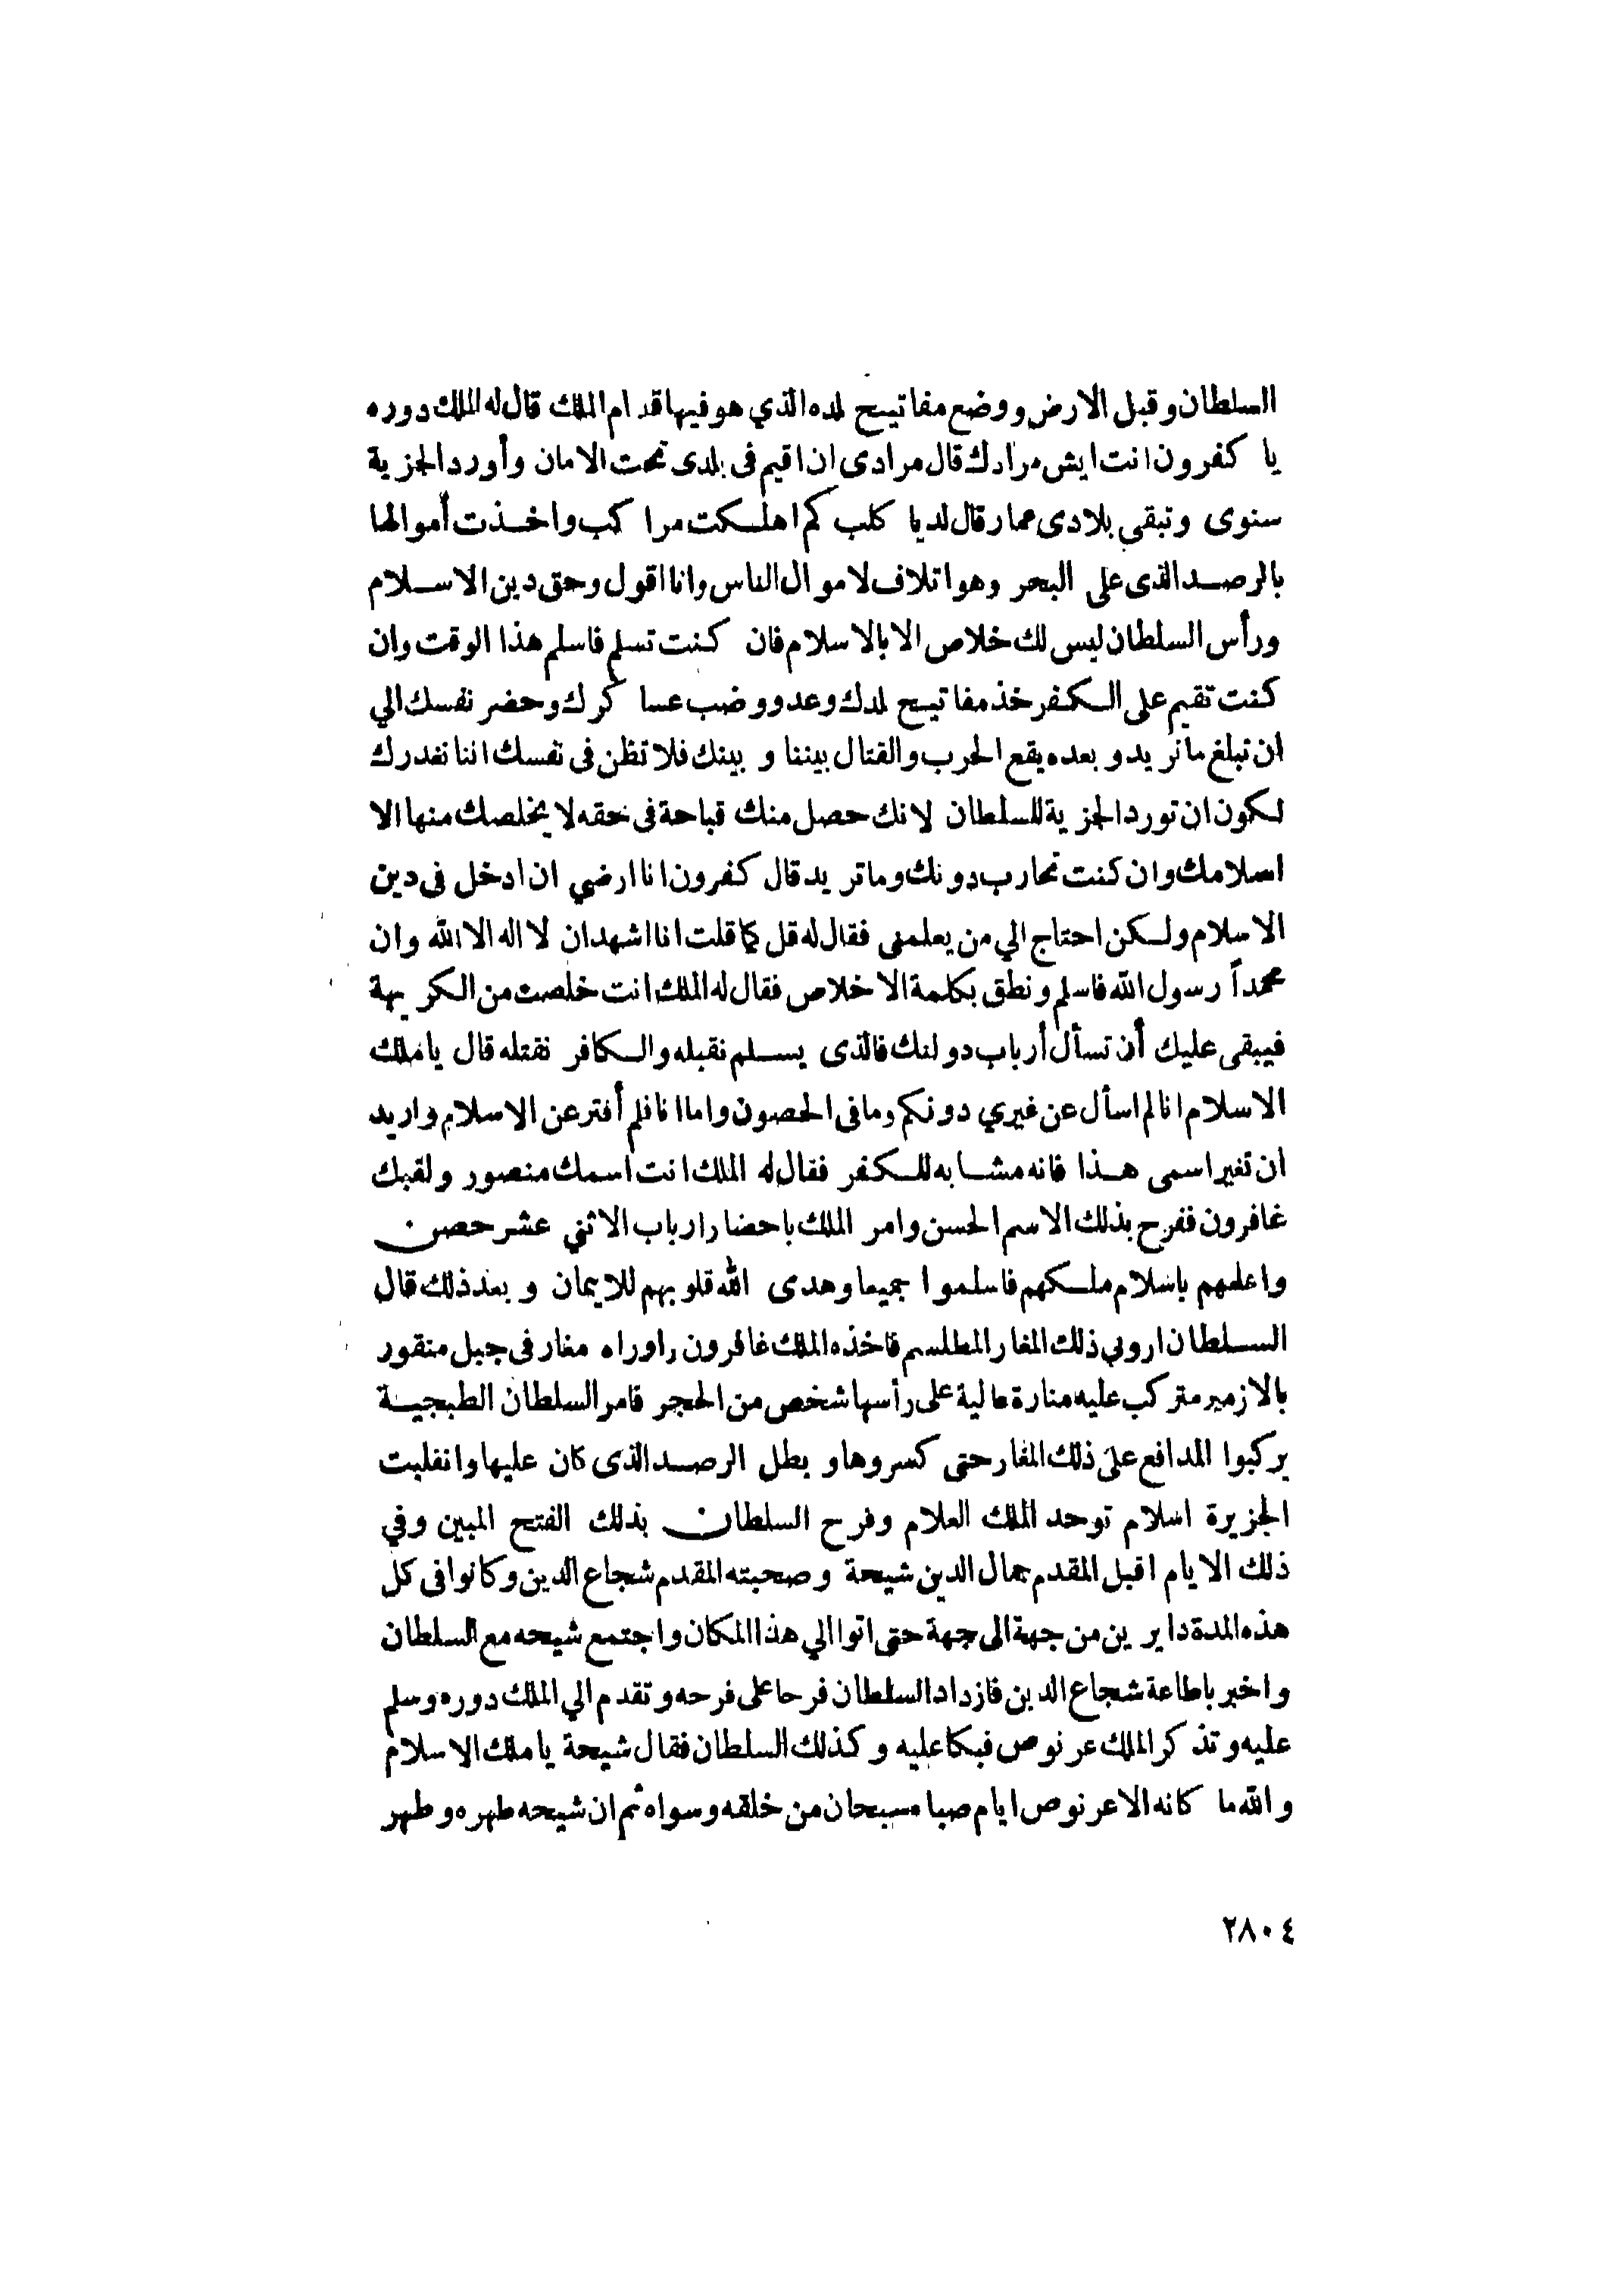 السلطان وقبل الارض ووضع مفاتيح لمده الذي هو فيها قدام الملك قال له الملك دوره
يا كفرون انت ايش مرادك قال مرادى ان اقيم فى بلدى تحت الامان وأورد الجزية
سنوى وتبقى بلادى عمار قال لديا كلب كم اهلكت مراكب واخذت أموالها
بالرصد الذى على البحر وهو اتلاف لاموال الناس وانا اقول وحق دين الاسلام
ورأس السلطان ليس لك خلاص الا بالاسلام فان كنت تسلم فاسلم هذا الوقت وان
كنت تقيم على الكفر خذ مفاتيح لمدك وعد ووضب عساكرك وحضر نفسك الي
ان تبلغ ما تريد وبعده يقع الحرب والقتال بيننا وبينك فلا تظن فى نفسك اننا نغدرك
لكون ان تورد الجزية للسلطان لانك حصل منك قباحة فى حقه لا يخلصك منها الا
اسلامك وان كنت تحارب دونك وما تريد قال كفرون انا ارضي ان ادخل فى دين
الاسلام ولكن احتاج الي من يعلمنى فقال له قل كما قلت انا اشهد ان لا اله الا الله وان
محمداً رسول الله فاسلم ونطق بكلمة الاخلاص فقال له الملك انت خلصت من الكريهة
فيبقى عليك أن تسأل أرباب دولتك فالذى يسلم نقبله والكافر نقتله قال يا ملك
الاسلام انا لم اسأل عن غيري دونكم وما فى الحصون واما انا فلم أفتر عن الاسلام واريد
ان تغير اسمى هذا فانه مشابه للكفر فقال له الملك انت اسمك منصور ولقبك
غافرون ففرح بذلك الاسم الحسن وامر الملك باحضار ارباب الاثني عشر حصن
واعلمهم باسلام ملكهم فاسلموا جميعا وهدى الله قلوبهم للايمان وبعد ذلك قال
السلطان اروني ذلك المغار المطلسم فاخذه الملك غافرون واوراه مغار فى جبل منقور
بالازمير متركب عليه منارة عالية على رأسها شخص من الحجر فامر السلطان الطبجية
يركبوا المدافع على ذلك المغار حتى كسروها وبطل الرصد الذى كان عليها وانقلبت
الجزيرة اسلام توحد الملك العلام وفرح السلطان بذلك الفتح المبين وفي
ذلك الايام اقبل المقدم جمال الدين شيحة وصحبته المقدم شجاع الدين وكانوا فى كل
هذه المدة دايرين من جهة الى جهة حتى اتوا الي هذا المكان واجتمع شيحه مع السلطان
واخبر باطاعة شجاع الدين فازداد السلطان فرحا على فرحه وتقدم الي الملك دوره وسلم
عليه وتذكر الملك عرنوص فبكا عليه وكذلك السلطان فقال شيحة يا ملك الاسلام
والله ما كانه الا عرنوص ايام صبا مسبحان من خلقه وسواه ثم ان شيحه طهره وطهر
٢٨٠٤